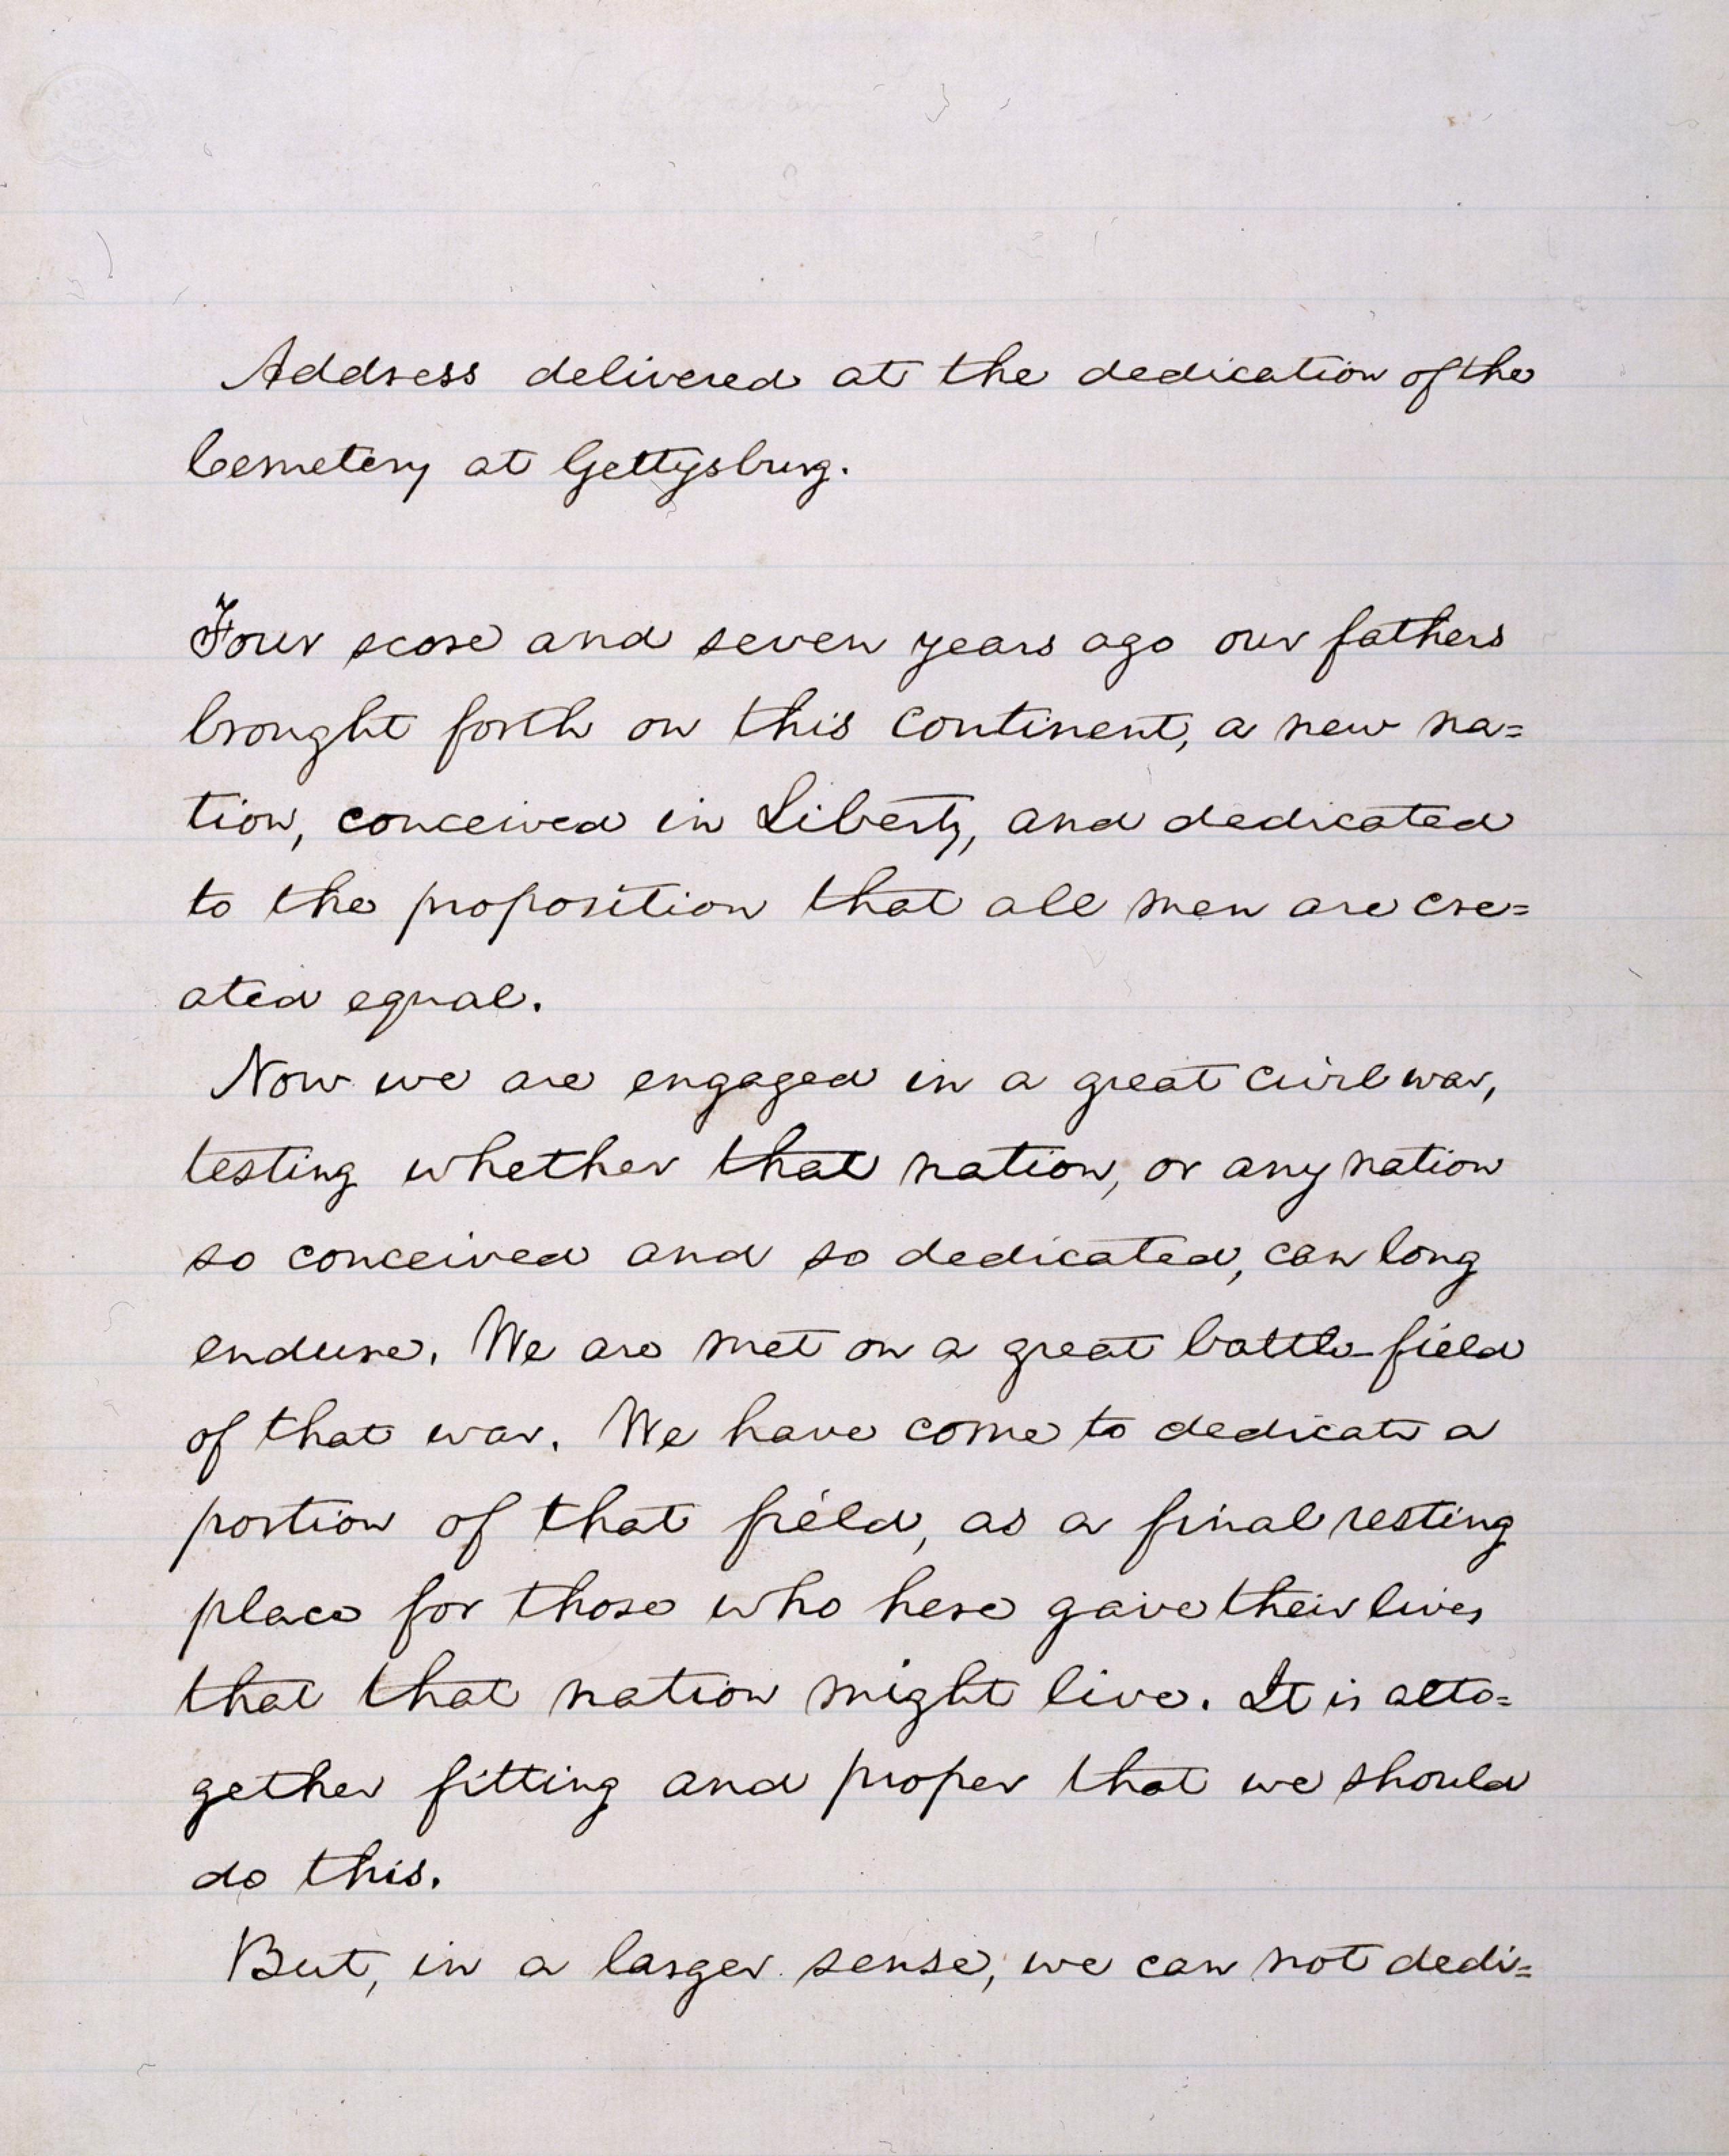 Address delivered at the dedication of the
Cemetery at Gettysburg.
Four score and seven years ago our fathers
brought forth on this continent, a new na=
tion, conceived in Liberty, and dedicated
to the proposition that all men are cre=
ated equal.
Now we are engaged in a great civil war,
testing whether that nation, or any nation
so conceived and so dedicated, can long
endure. We are met on a great battle-field
of that war. We have come to dedicate a
portion of that field, as a final resting
place for those who here gave their lives
that that nation might live. It is alto=
gether fitting and proper that we should
do this.
But, in a larger sense, we can not dedi=